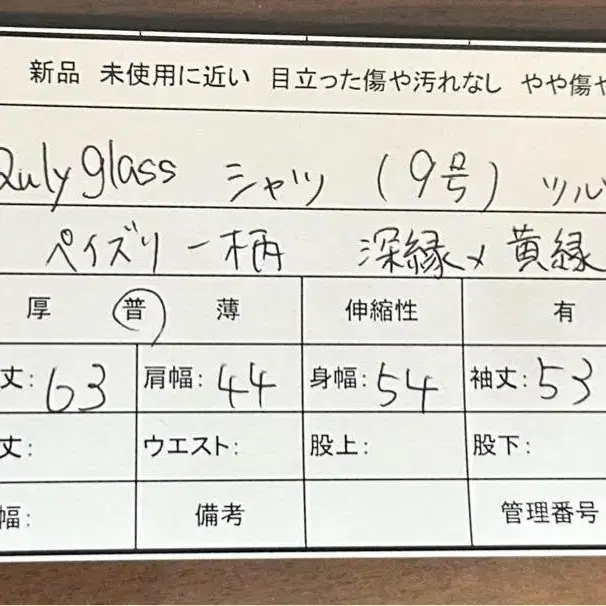 新品 未使用に近い 目立った傷や汚れなし やや傷や
Qulyglass シャツ (9号) ツル
ペイズリー柄 深縁×黄縁
厚 普 薄 伸縮性 有
丈: 63 肩幅: 44 身幅: 54 袖丈: 53
丈: ウエスト: 股上: 股下:
幅: 備考 管理番号